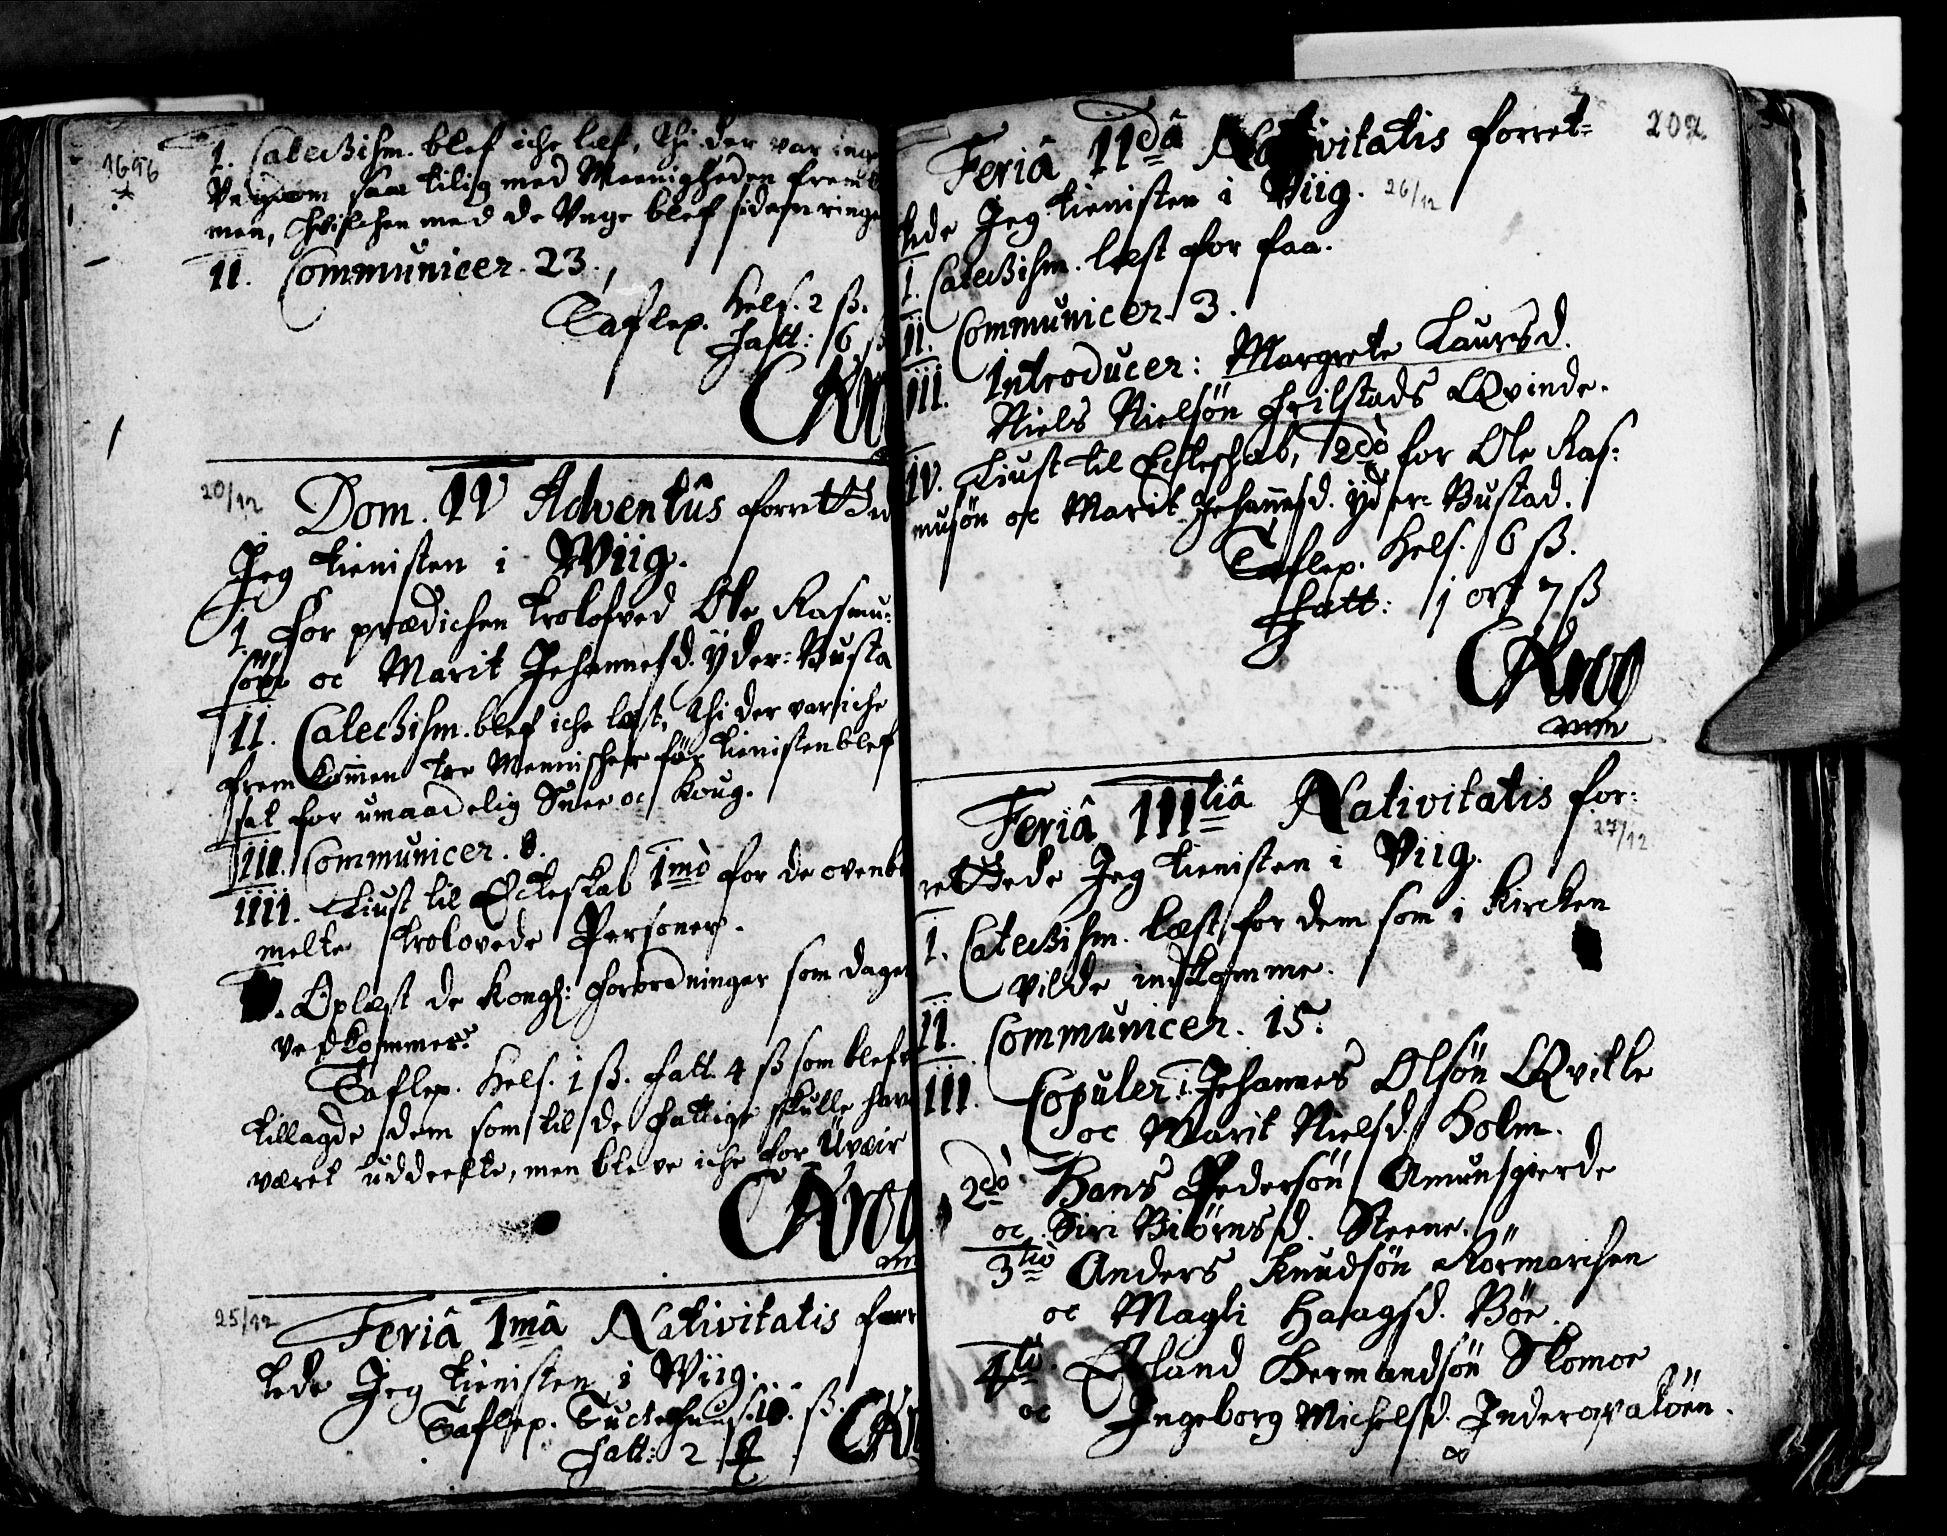 1696
I. Catechism. blef iche læst, thi der var inge
Ungdom saa tilig med Menigheden frem
men, Efvischen med de Unge blef siden ringe
II. Communicer. 23.
Taflep. Hels. 2 ß.
Fatt: 6 ß
20/12
Dom. IV Adventûs forrettede
Jeg tienisten i Wiig.
I. For prædichen trolofved Ole Rasmu-
søn oc Marit Johannesd. Yder: Busta
II. Catechism. blef iche læst, thi der var iche
frem kommen tre Mennischer før tienisten blef
sat for umaadelig Snee oc Koug.
III. Communicer. 8.
IIII. Liust til Ecteskab 1mò for de ovenbe
melte trolovede Personer.
Oplæst de Kongl: Forordninger som dagen
vedkommer.
Taflep. Hels. 1 ß. Fatt. 4 ß som blef
tillagde dem som til de Fattige skulle hav
været uddeelte, men bleve iche for Uveir
25/12
Feriâ 1mâ Nativitatis forret
tede Jeg tienisten i Wiig.
Taflep. Tuctehuus. 10. ß.
Fatt: 2
202
Feriâ IIdâ Nativitatis forret-
tede Jeg tienisten i Viig. 26/12
I. Catechism. læst for faa.
II. Communicer. 3.
III. Introducer: Margrete Laursd.
Niels Nielsøn Frilstads Qvinde.
IV. Liust til Ecteskab, 2dò for Ole Ras:
musøn oc Marit Johannesd. Yder: Bustad.
Taflep. Hels. 6 ß.
Fatt: 1 ort 7 ß
Feriâ IIItiâ Nativitatis for:
27/12
rettede Jeg tienisten i Viig.
I. Catechism. læst for dem som i Kircken
vilde indkomme.
II. Communicer. 15.
III. Copuler: Johannes Olsøn Qville
oc Marit Nielsd. Holm.
2dò. Hans Pedersøn Amunsgierde
oc Siri Biørnsd. Steene.
3tiò Anders Knudsøn Rørmarchen
oc Magli Haagsd. Bøe.
4tò. Erland Hermandsøn Skomoe
oc Ingeborg Michelsd. Inderavatøen.